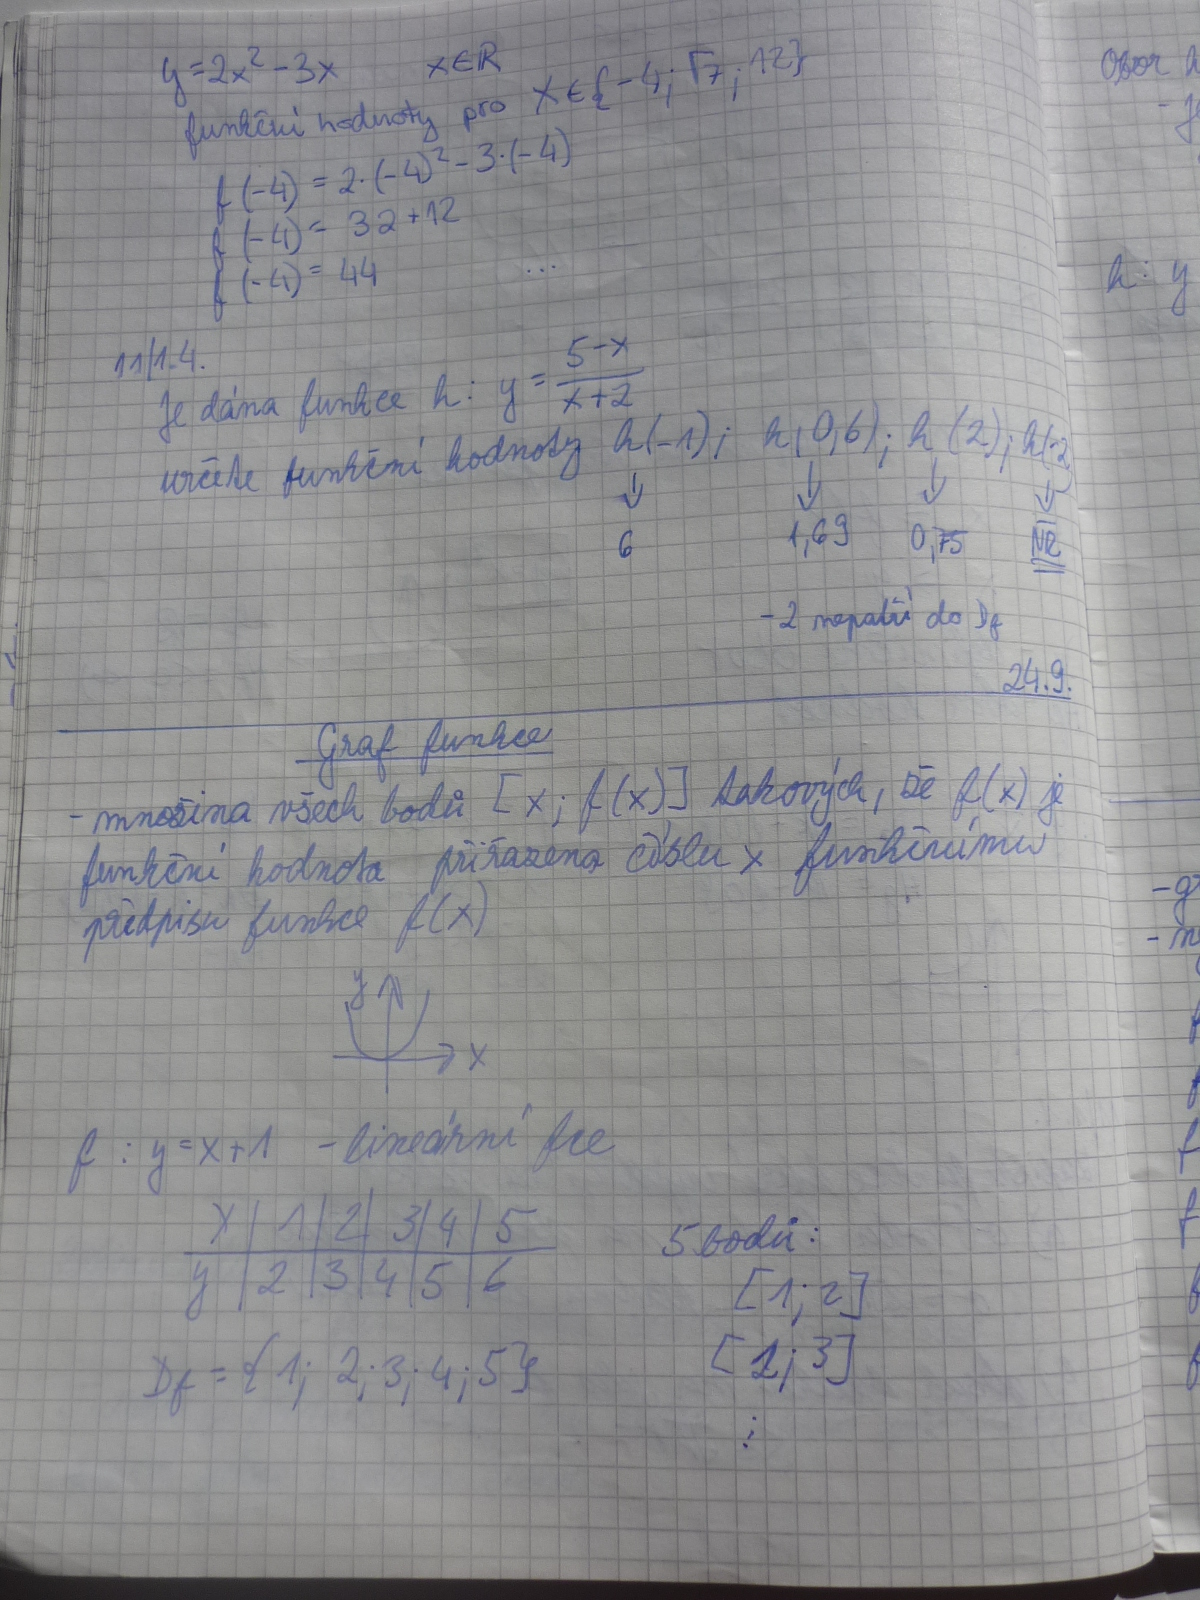 y = 2x² - 3x x∈R
funkční hodnoty pro x∈{-4; √7; 12}
f(-4) = 2·(-4)² - 3·(-4)
f(-4) = 32 + 12
f(-4) = 44 ...
11/1.4.
Je dána funkce h: y = (5-x)/(x+2)
určete funkční hodnoty h(-1); h(0,6); h(2); h(-2
↓ ↓ ↓ ↓
6 1,69 0,75 NE
-2 nepatří do Df
24.9.
Graf funkce
- množina všech bodů [x; f(x)] takových, že f(x) je
funkční hodnota přiřazena číslu x funkčnímu
předpisu funkce f(x)
y
x
f: y = x+1 - lineární fce
x | 1 | 2 | 3 | 4 | 5
y | 2 | 3 | 4 | 5 | 6
Df = {1; 2; 3; 4; 5}
5 bodů:
[1; 2]
[2; 3]
⋮
Obor
h: y